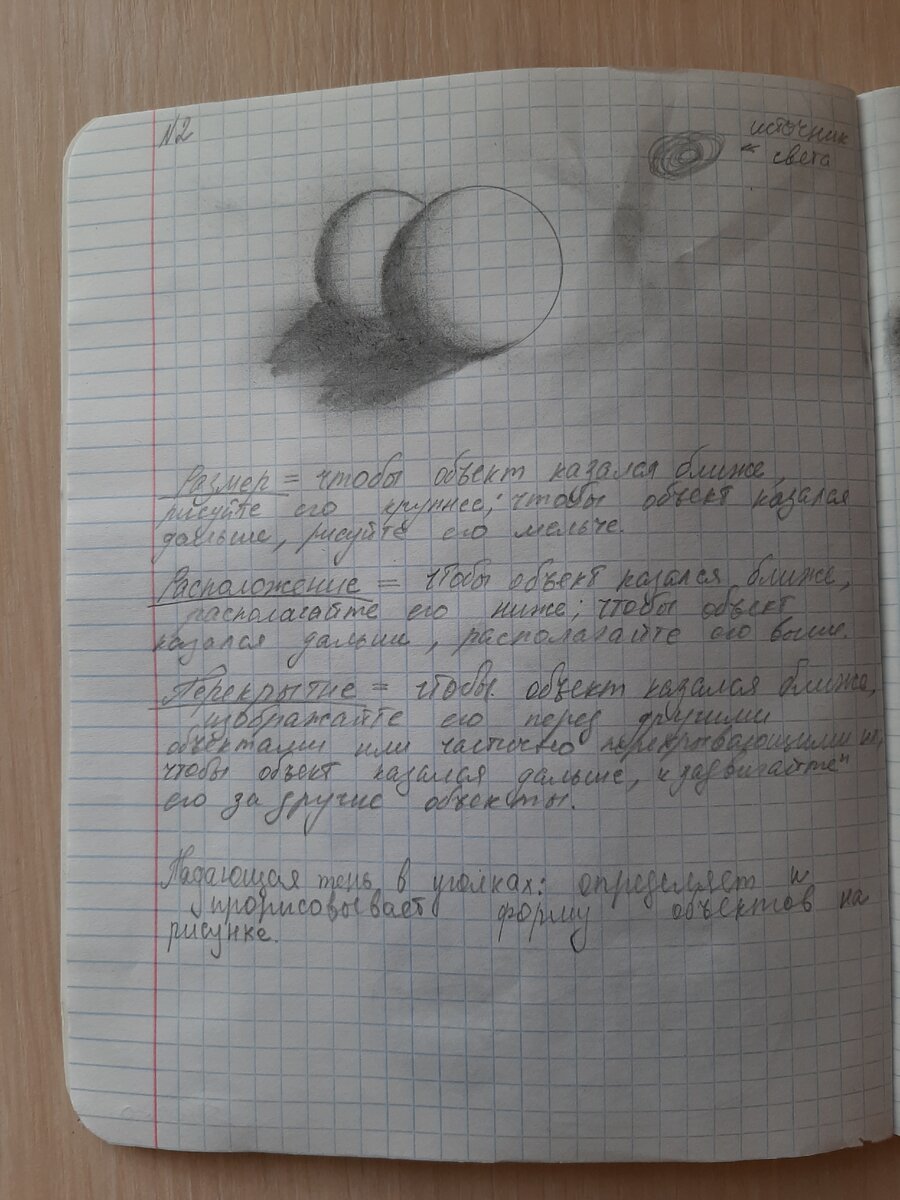 №2
источник
света
Размер = чтобы объект казался ближе,
рисуйте его крупнее; чтобы объект казался
дальше, рисуйте его мельче.
Расположение = чтобы объект казался ближе,
располагайте его ниже; чтобы объект
казался дальше, располагайте его выше.
Перекрытие = чтобы объект казался ближе,
изображайте его перед другими
объектами или частично перекрывающими их,
чтобы объект казался дальше, "задвигайте"
его за другие объекты.
Падающая тень в уголках: определяет и
прорисовывает форму объектов на
рисунке.